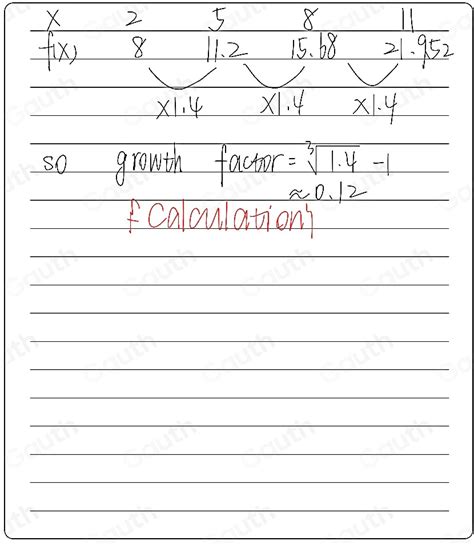 x 2 5 8 11
f(x) 8 11.2 15.68 21.952
x1.4 x1.4 x1.4
so growth factor = ∛1.4 -1
≈0.12
{Calculation}